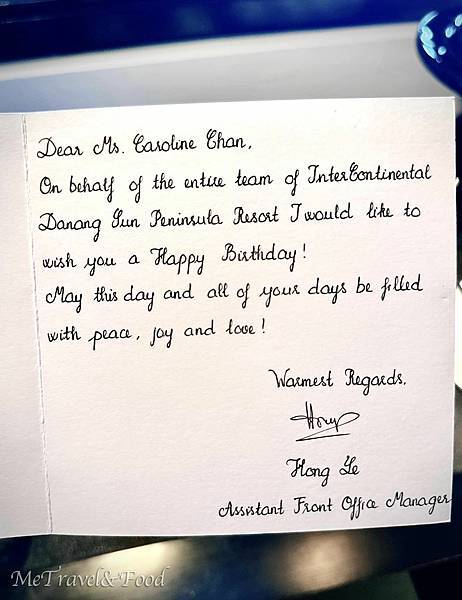 Dear Ms. Caroline Chan,
On behalf of the entire team of InterContinental
Danang Sun Peninsula Resort I would like to
wish you a Happy Birthday!
May this day and all of your days be filled
with peace, joy and love!
Warmest Regards.
Hong
Hong Le
Assistant Front Office Manager
MeTravel&Food